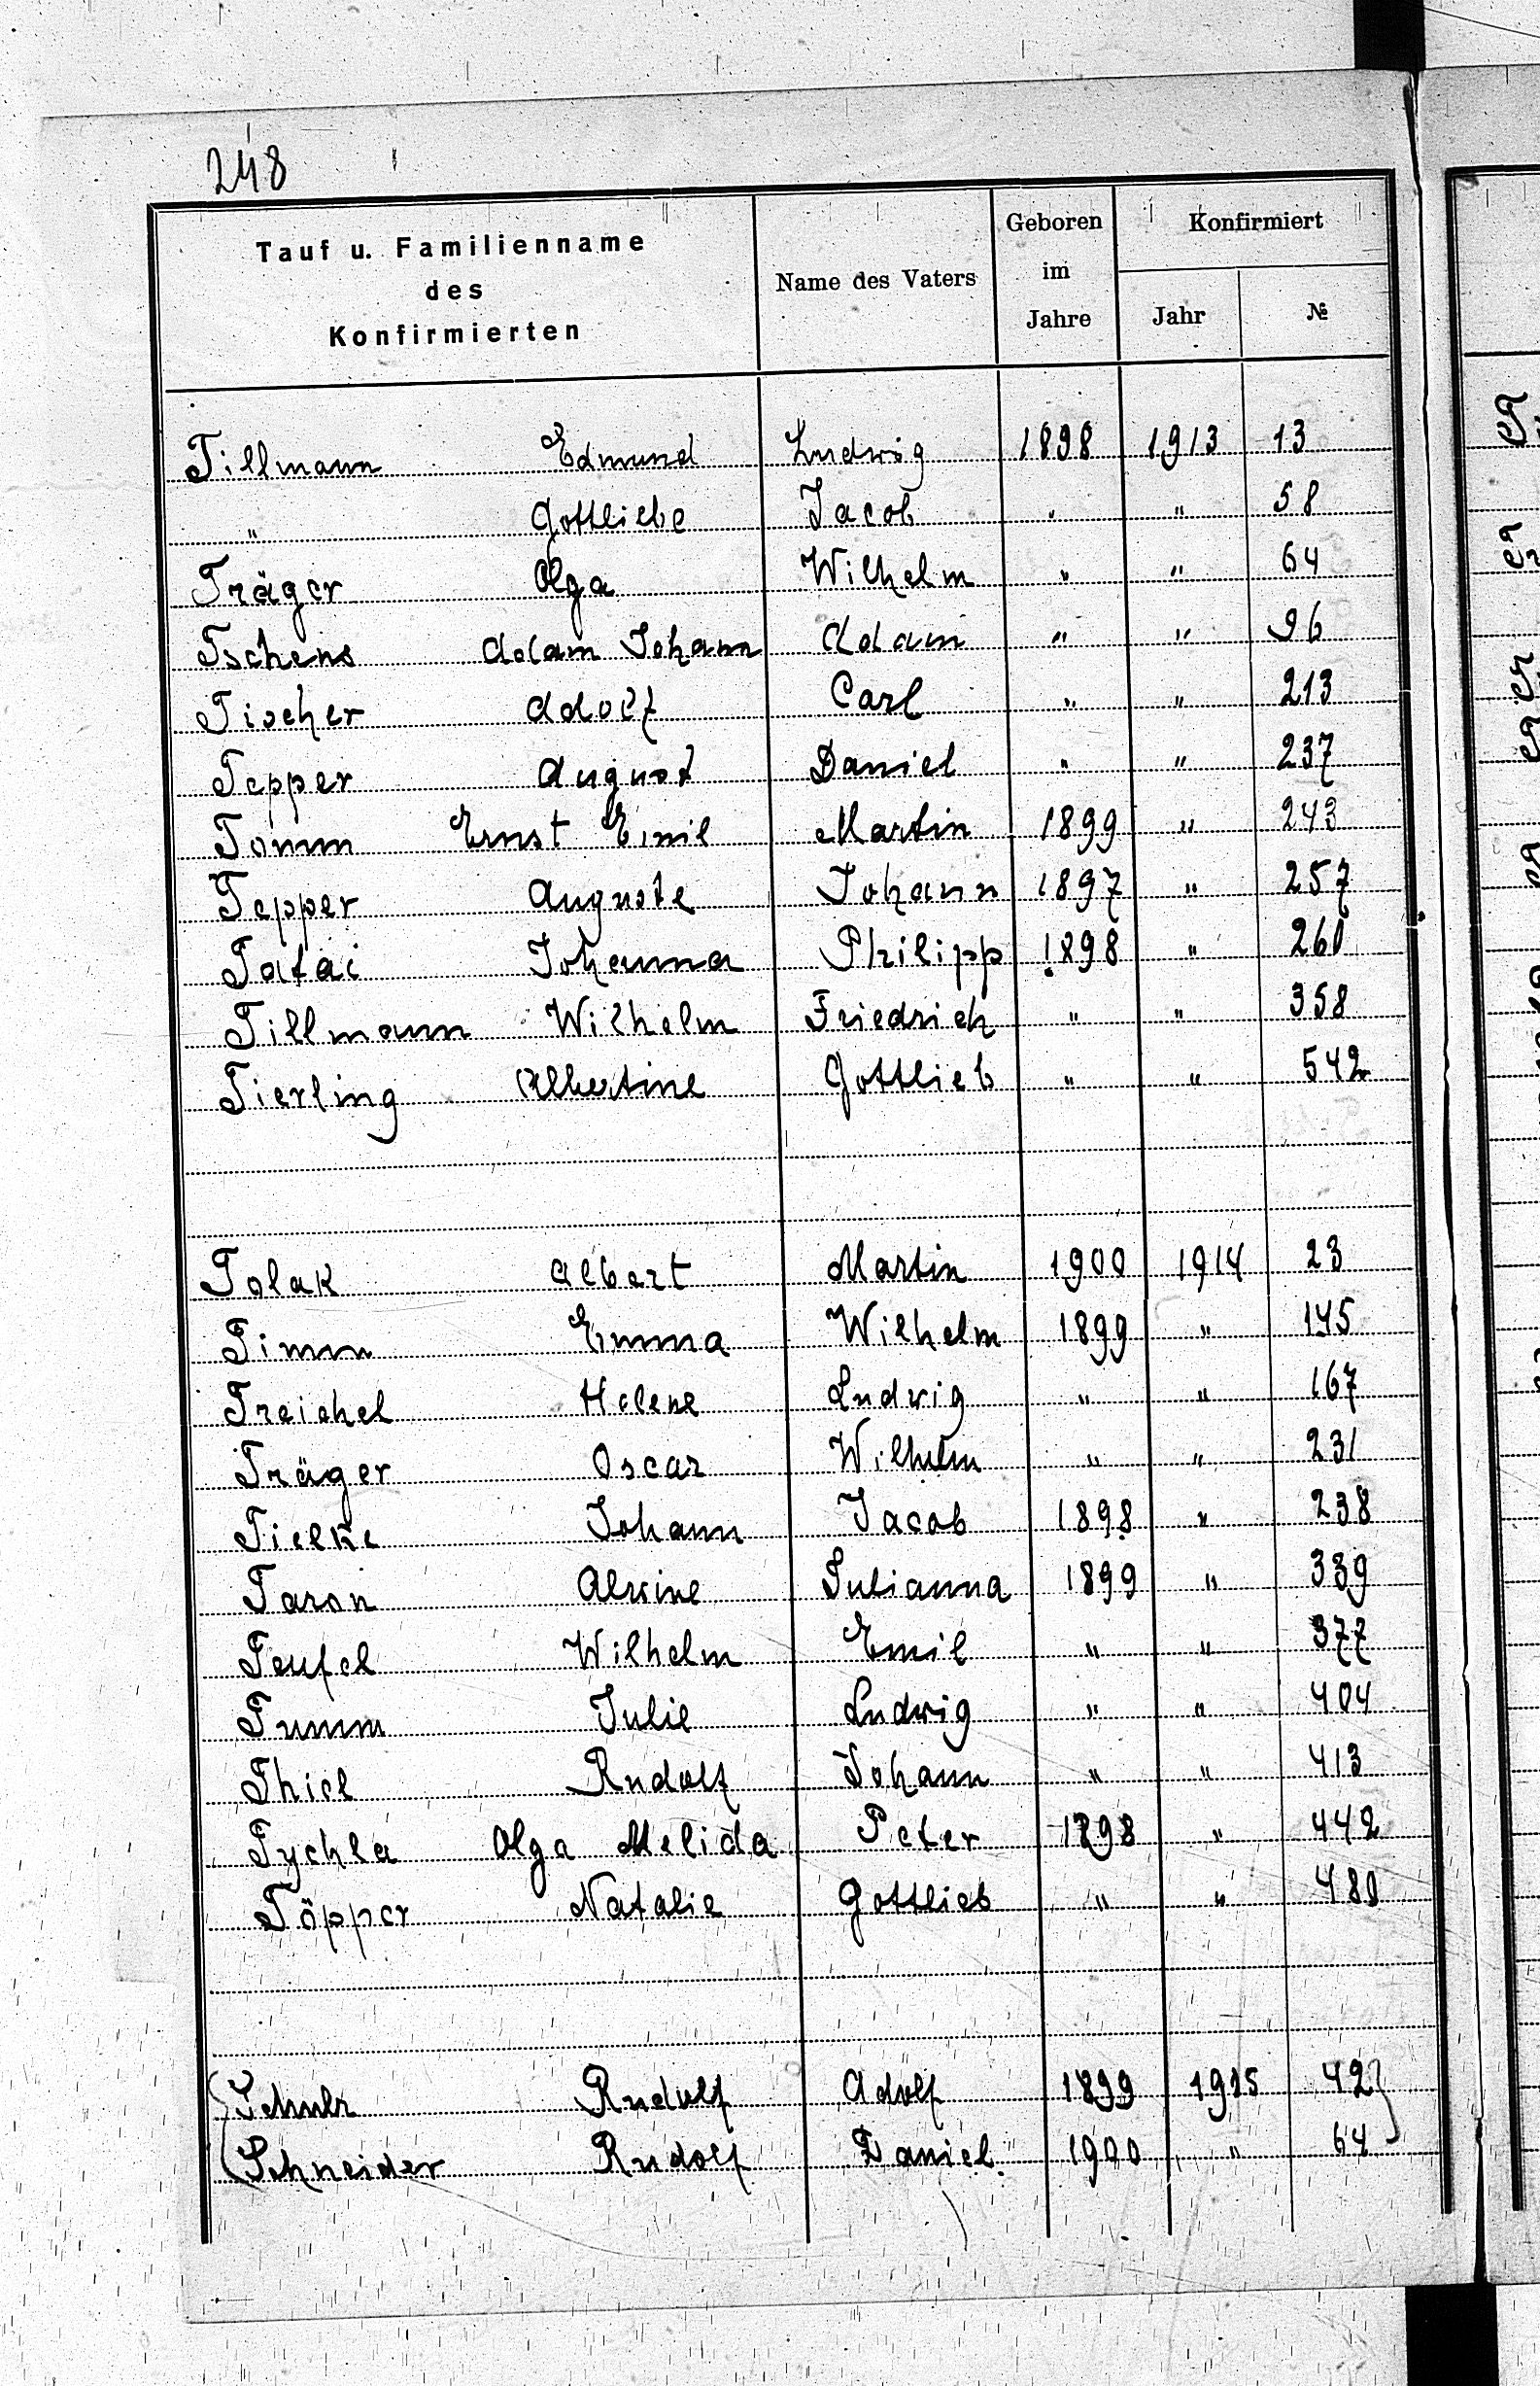 248
Tauf u. Familienname
des
Konfirmierten
Name des Vaters
Geboren
im
Jahre
Konfirmiert
Jahr
№
Tillmann Edmund Ludwig 1898 1913 13
" Gottliebe Jacob " " 58
Träger Olga Wilhelm " " 64
Tschens Adam Johann Adam " " 96
Tischer Adolf Carl " " 213
Tepper August Daniel " " 237
Tomm Ernst Emil Martin 1899 " 243
Tepper Auguste Johann 1897 " 257
Tatai Johanna Philipp 1898 " 260
Tillmann Wilhelm Friedrich " " 358
Tierling Albertine Gottlieb " " 542
Tolak Albert Martin 1900 1914 23
Timm Emma Wilhelm 1899 " 145
Treichel Helene Ludwig " " 167
Träger Oscar Wilhelm " " 231
Tielke Johann Jacob 1898 " 238
Taron Alwine Julianna 1899 " 339
Teufel Wilhelm Emil " " 377
Tumm Julie Ludwig " " 404
Thiel Rudolf Johann " " 413
Tychla Olga Melida Peter 1898 " 442
Töpper Natalie Gottlieb " " 480
Rudolf Adolf 1899 1915 42
Schneider Rudolf Daniel 1900 " 64